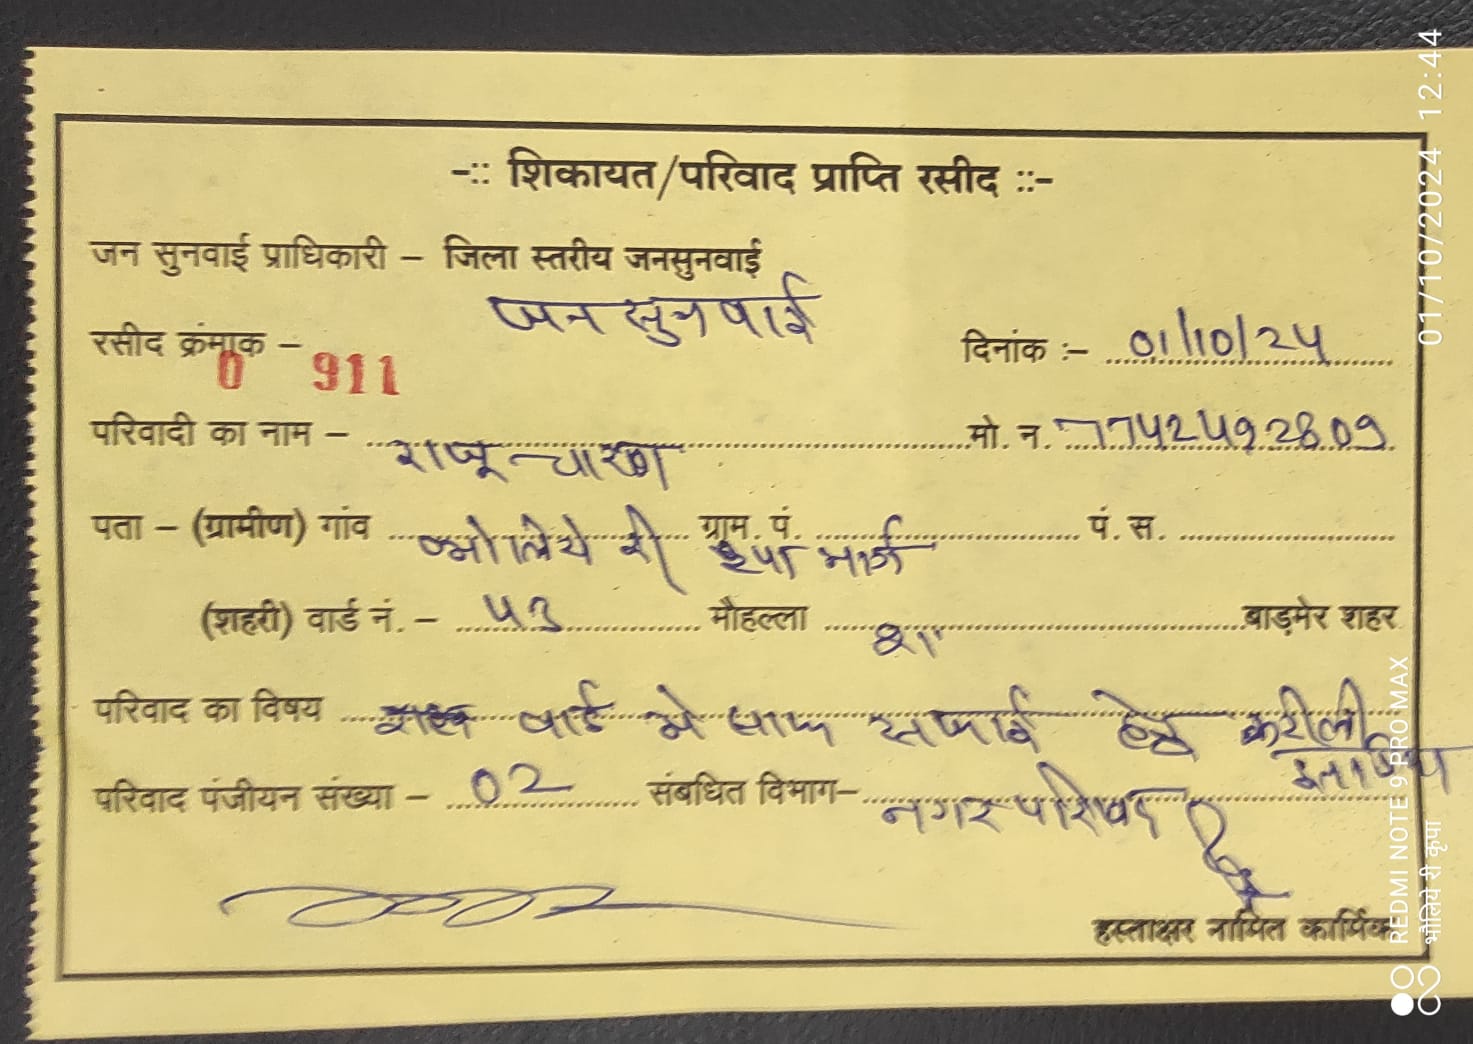 -:: शिकायत/परिवाद प्राप्ति रसीद ::-
जन सुनवाई प्राधिकारी – जिला स्तरीय जनसुनवाई
जन सुनवाई
रसीद क्रंमाक – 0 911 दिनांक :– 01/10/24
परिवादी का नाम – राजू चारण मो. न. 7742492809
पता – (ग्रामीण) गांव भोलिये री ग्राम. पं. कृपा मार्ग पं. स.
(शहरी) वार्ड नं. – 43 मौहल्ला बाड़मेर शहर
परिवाद का विषय वार्ड मे साफ सफाई हेतु
परिवाद पंजीयन संख्या – 02 संबधित विभाग– नगर परिषद
हस्ताक्षर नामित कार्मिक
01/10/2024 12:44
REDMI NOTE 9 PRO MAX
भोलिये री कृपा